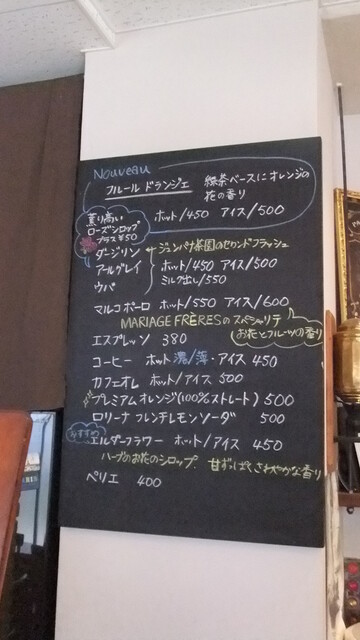 Nouveau
フルール ドランジェ 緑茶ベースにオレンジの
花の香り
ホット/450 アイス/500
薫り高い
ローズシロップ
プラス¥50
ダージリン ジュンパナ茶園のセカンドフラッシュ
アールグレイ ホット/450 アイス/500
ウバ ミルク出し/550
マルコポーロ ホット/550 アイス/600
MARIAGE FRÈRESのスペシャリテ
お花とフルーツの香り
エスプレッソ 380
コーヒー ホット 濃/薄・アイス 450
カフェオレ ホット/アイス 500
プレミアムオレンジ(100%ストレート) 500
ロリーナ フレンチレモンソーダ 500
おすすめ
エルダーフラワー ホット/アイス 450
ハーブのお花のシロップ 甘ずっぱくさわやかな香り
ペリエ 400